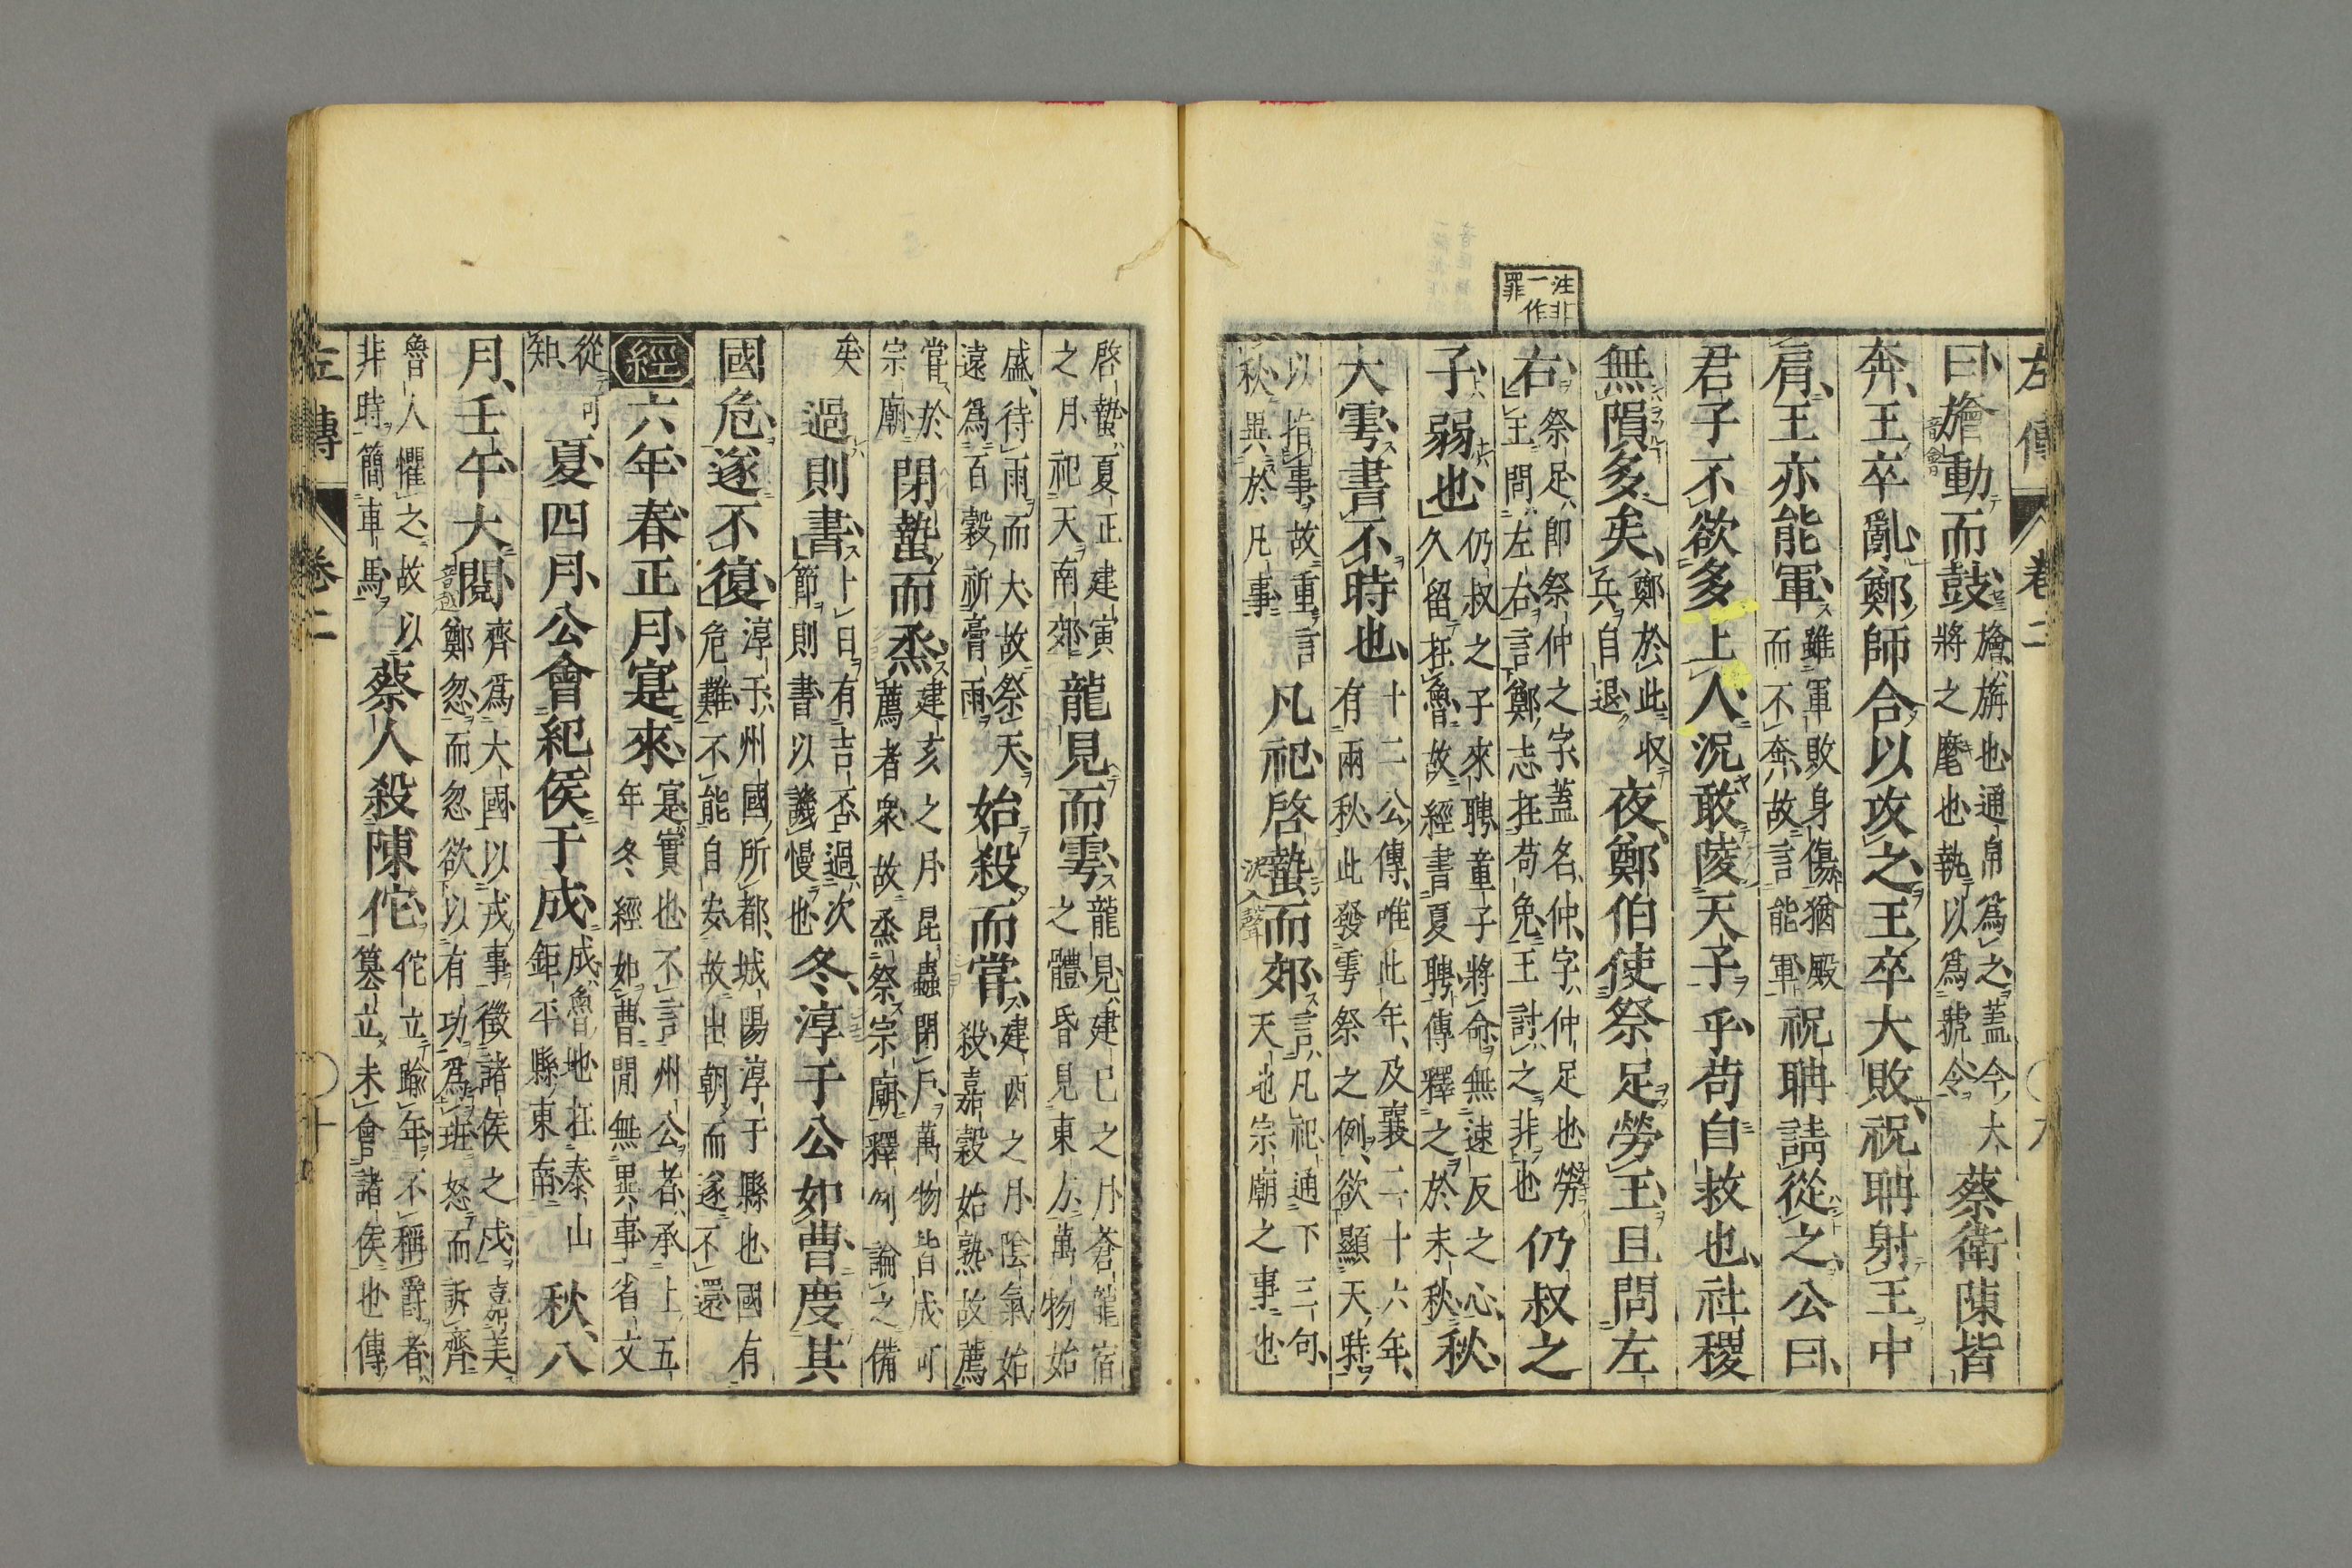 左傳 卷二 ○九
曰旝動而鼓旝旃也通帛爲之蓋今大將之麾也執以爲號令蔡衛陳皆
音會
奔王卒亂鄭師合以攻之王卒大敗祝聃射王中
肩王亦能軍雖軍敗身傷猶殿而不奔故言能軍祝聃請從之公曰
君子不欲多上人況敢陵天子乎苟自救也社稷
無隕多矣鄭於此収兵自退夜鄭伯使祭足勞王且問左
注非一作罪
右祭足即祭仲之字蓋名仲字仲足也勞王問左右言鄭志在苟免王討之非也仍叔之
子弱也仍叔之子來聘童子將命無速反之心久留在魯故經書夏聘傳釋之於末秋秋
大雩書不時也十二公傳唯此年及襄二十六年有兩秋此發雩祭之例欲顯天時
以指事故重言秋異於凡事凡祀啓蟄而郊言凡祀通下三句天地宗廟之事也
啓蟄夏正建寅之月祀天南郊龍見而雩龍見建巳之月蒼龍宿之體昏見東方萬物始
盛待雨而大故祭天遠爲百穀祈膏雨始殺而嘗建酉之月陰氣始殺嘉穀始熟故薦
嘗於宗廟閉蟄而烝建亥之月昆蟲閉戶萬物皆成可薦者衆故烝祭宗廟釋例論之備
矣過則書卜日有吉否過次節則書以譏慢也冬淳于公如曹度其
國危遂不復淳于州國所都城陽淳于縣也國有危難不能自安故出朝而遂不還
經六年春正月寔來寔實也不言州公者承上五年冬經如曹閒無異事省文
從可知夏四月公會紀侯于成成魯地在泰山鉅平縣東南秋八
月壬午大閱齊爲大國以戎事徵諸侯之戍嘉美鄭忽而忽欲以有功爲班怒而訴齊
音越
魯人懼之故以非時簡車馬蔡人殺陳佗佗立踰年不稱爵者篡立未會諸侯也傳
左傳 卷二 ○十